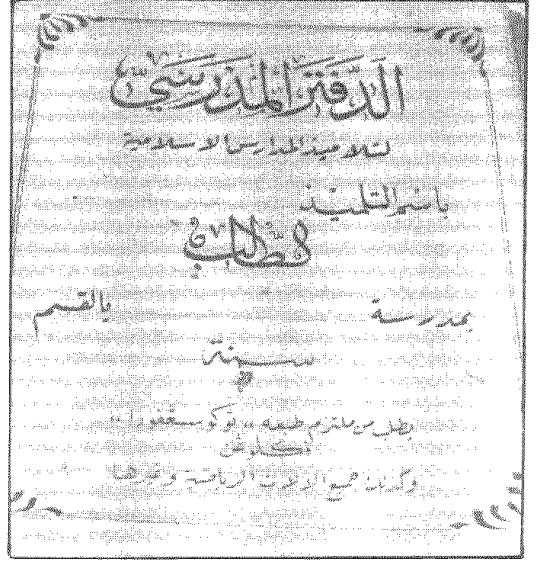 الدفتر المدرسي
لتلاميذ المدارس الاسلامية
باسم التلميذ
الطالب
بمدرسة بالقسم
سنة
يطلب من ملتزم طبعه ،، توكو سعفورا ،،
فكلوغن
وكذلك جميع الادوات الرياضية وغيرها